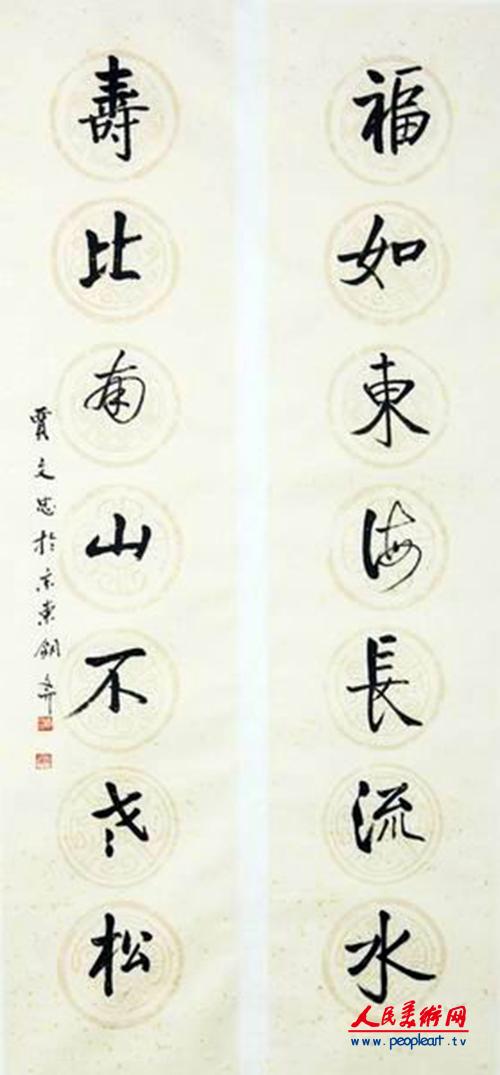 福如東海長流水
壽比南山不老松
賈文忠於京東銅齋
人民美術网
www.peopleart.tv